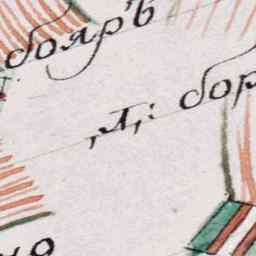 бояръ
,л,: бор
но